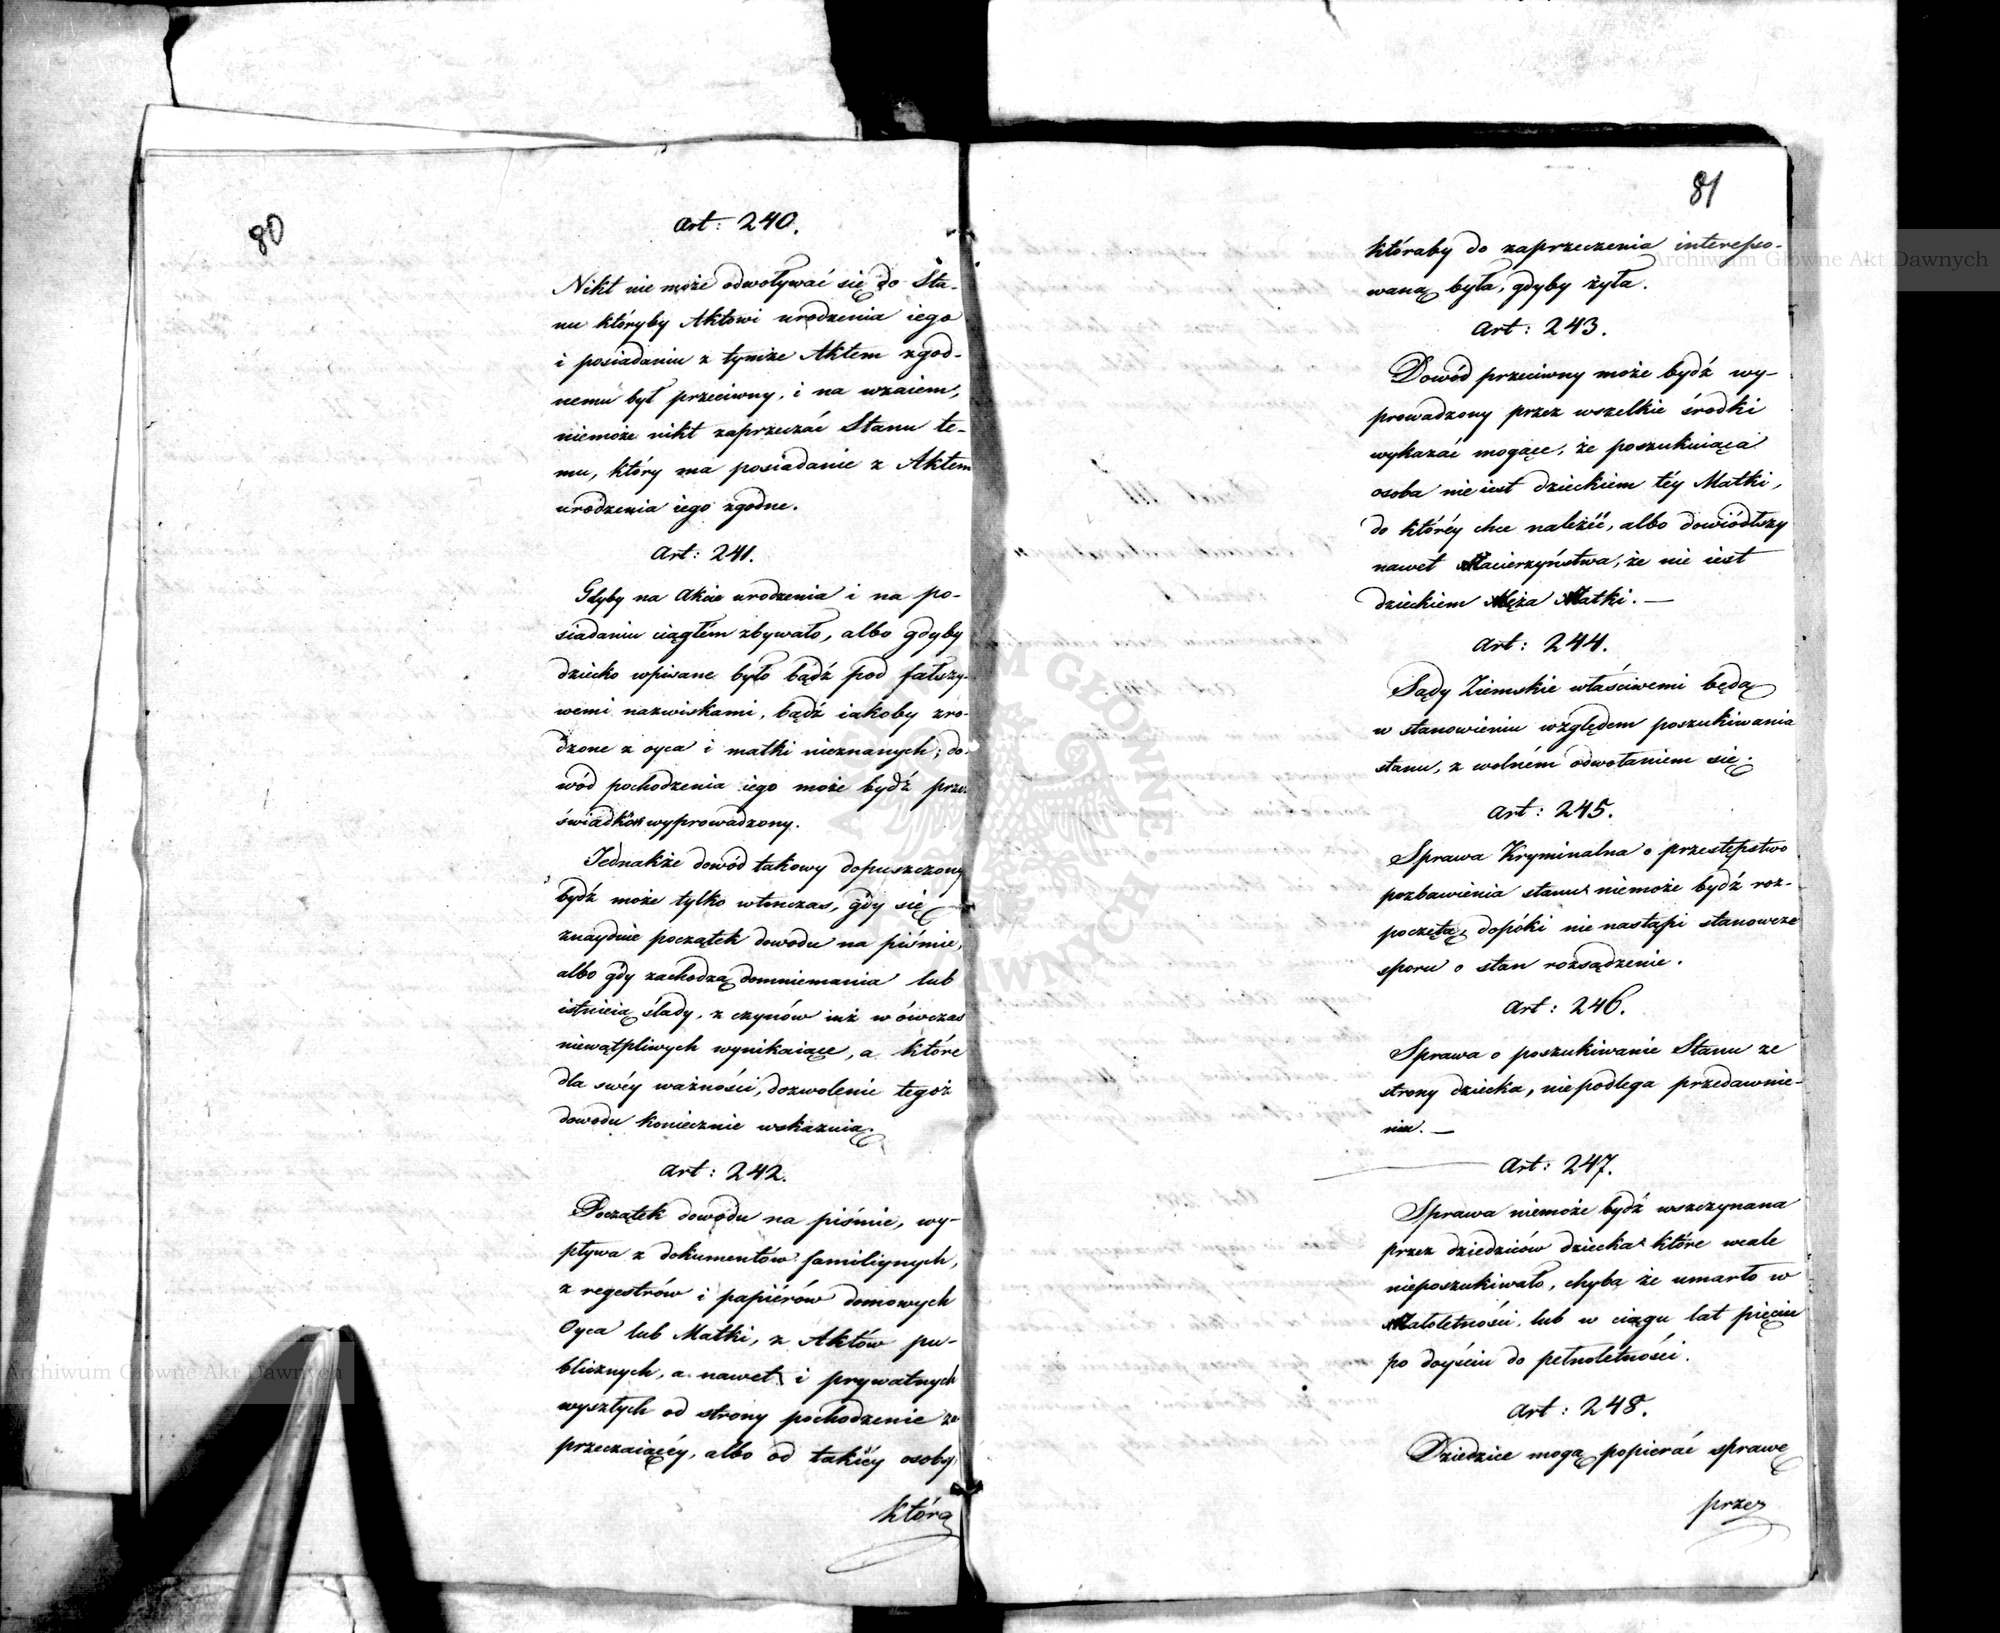 80
Art: 240.
Nikt nie może odwoływać się do Sta-
nu któryby Aktowi urodzenia iego
i posiadaniu z tymże Aktem zgod-
nemu był przeciwny, i na wzaiem,
niemoże nikt zaprzeczać Stanu te-
mu, który ma posiadanie z Aktem
urodzenia iego zgodne.
Art: 241.
Gdyby na Akcie urodzenia i na po-
siadaniu ciągłém zbywało, albo gdyby
dziecko wpisane było bądź pod fałszy-
wemi nazwiskami, bądź iakoby zro-
dzone z oyca i matki nieznanych; do-
wód pochodzenia iego może bydź przez
świadków wyprowadzony.
Jednakże dowód takowy dopuszczony
bydź może tylko wtenczas, gdy się
znayduie początek dowodu na piśmie,
albo gdy zachodzą domniemania lub
istnieią ślady, z czynów iuż w ówczas
niewątpliwych wynikaiące, a które
dla swéy ważności, dozwolenie tegoż
dowodu koniecznie wskazuią.
Art: 242.
Początek dowodu na piśmie, wy-
pływa z dokumentów familiynych,
z regestrów i papiérów domowych
Oyca lub Matki, z Aktów pu-
blicznych, a nawet i prywatnych
wyszłych od strony pochodzenie za
przeczaiącéy, albo od takiéy osoby
któraby
81
któraby do zaprzeczenia interesso-
waną była, gdyby żyła.
Art: 243.
Dowód przeciwny może bydź wy-
prowadzony przez wszelkie środki
wykazać mogące, że poszukuiąca
osoba nie iest dzieckiem téy Matki,
do któréy chce należéć, albo dowiódłszy
nawet Macierzyństwa, że nie iest
dzieckiem Męża Matki. —
Art: 244.
Sądy Ziemskie właściwemi będą
w stanowieniu względem poszukiwania
stanu, z wolném odwołaniem się.
Art: 245.
Sprawa Kryminalna o przestępstwo
pozbawienia stanu niemoże bydź roz-
poczętą, dopóki nie nastąpi stanowcze
sporu o stan rozsądzenie.
Art: 246.
Sprawa o poszukiwanie Stanu ze
strony dziecka, niepodlega przedawnie-
niu. —
Art: 247.
Sprawa niemoże bydź wszczynana
przez dziedziców dziecka które wcale
nieposzukiwało, chyba że umarło w
Małoletności, lub w ciągu lat pięciu
po doyściu do pełnoletności.
Art: 248.
Dziedzice mogą popierać sprawę
przez
Archiwum Główne Akt Dawnych
Archiwum Główne Akt Dawnych